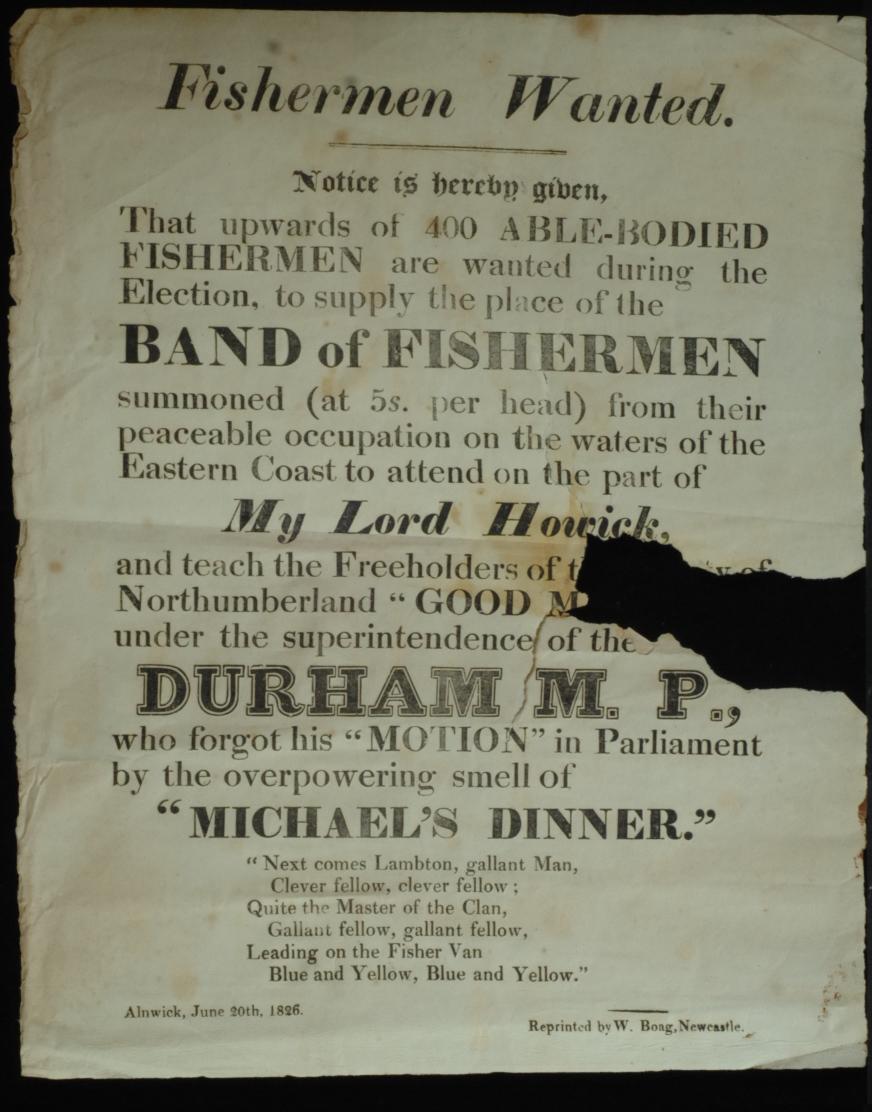 Fishermen Wanted.
Notice is hereby given,
That upwards of 400 ABLE-BODIED
FISHERMEN are wanted during the
Election, to supply the place of the
BAND of FISHERMEN
summoned (at 5s. per head) from their
peaceable occupation on the waters of the
Eastern Coast to attend on the part of
My Lord Howick,
and teach the Freeholders of of
Northumberland “ GOOD
under the superintendence of the
DURHAM M. P.,
who forgot his “MOTION” in Parliament
by the overpowering smell of
“MICHAEL'S DINNER.”
“ Next comes Lambton, gallant Man,
Clever fellow, clever fellow ;
Quite the Master of the Clan,
Gallant fellow, gallant fellow,
Leading on the Fisher Van
Blue and Yellow, Blue and Yellow.”
Alnwick, June 20th, 1826.
Reprinted by W. Boag, Newcastle.